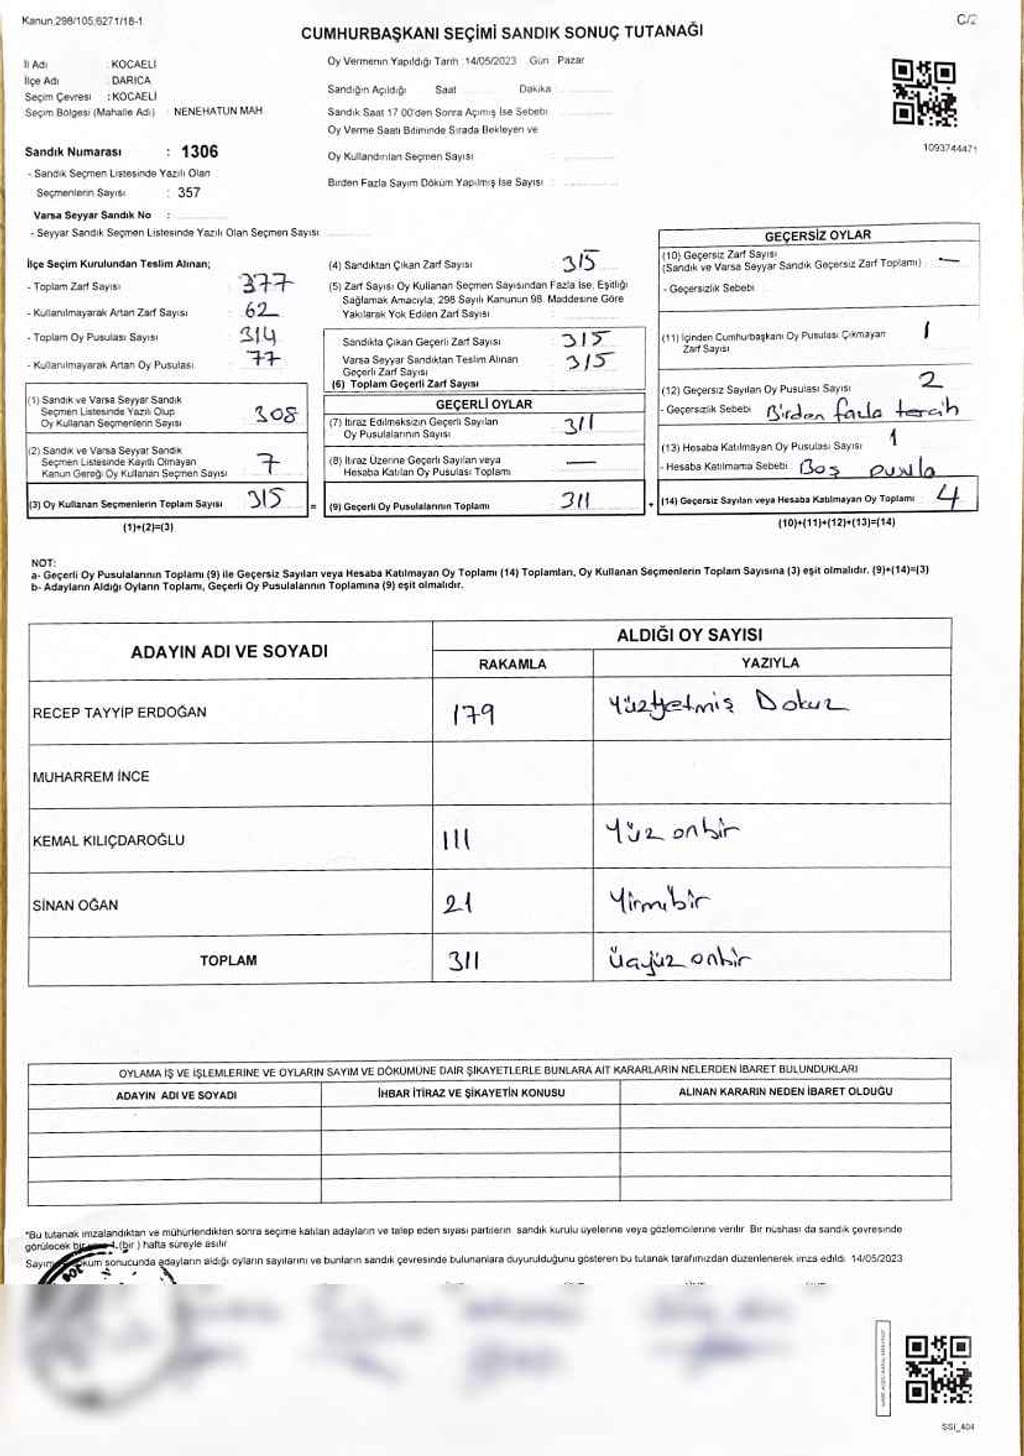 Kanun:298/105;6271/18-1
C/2
CUMHURBAŞKANI SEÇİMİ SANDIK SONUÇ TUTANAĞI
İl Adı : KOCAELİ
İlçe Adı : DARICA
Seçim Çevresi : KOCAELİ
Seçim Bölgesi (Mahalle Adı) : NENEHATUN MAH
Sandık Numarası : 1306
- Sandık Seçmen Listesinde Yazılı Olan
Seçmenlerin Sayısı : 357
Varsa Seyyar Sandık No :
- Seyyar Sandık Seçmen Listesinde Yazılı Olan Seçmen Sayısı:
Oy Vermenin Yapıldığı Tarih :14/05/2023 Gün Pazar
Sandığın Açıldığı Saat Dakika
Sandık Saat 17 00'den Sonra Açımış İse Sebebi
Oy Verme Saati Bitiminde Sırada Bekleyen ve
Oy Kullandırılan Seçmen Sayısı :
Birden Fazla Sayım Döküm Yapılmış İse Sayısı :
1093744471
İlçe Seçim Kurulundan Teslim Alınan;
- Toplam Zarf Sayısı : 377
- Kullanılmayarak Artan Zarf Sayısı : 62
- Toplam Oy Pusulası Sayısı : 314
- Kullanılmayarak Artan Oy Pusulası : 77
(1) Sandık ve Varsa Seyyar Sandık
Seçmen Listesinde Yazılı Olup
Oy Kullanan Seçmenlerin Sayısı : 308
(2) Sandık ve Varsa Seyyar Sandık
Seçmen Listesinde Kayıtlı Olmayan
Kanun Gereği Oy Kullanan Seçmen Sayısı : 7
(3) Oy Kullanan Seçmenlerin Toplam Sayısı : 315
(1)+(2)=(3)
(4) Sandıktan Çıkan Zarf Sayısı : 315
(5) Zarf Sayısı Oy Kulanan Seçmen Sayısından Fazla İse, Eşitliği
Sağlamak Amacıyla, 298 Sayılı Kanunun 98. Maddesine Göre
Yakılarak Yok Edilen Zarf Sayısı :
Sandıkta Çıkan Geçerli Zarf Sayısı : 315
Varsa Seyyar Sandıktan Teslim Alınan
Geçerli Zarf Sayısı : 315
(6) Toplam Geçerli Zarf Sayısı
GEÇERLİ OYLAR
(7) İtiraz Edilmeksizin Geçerli Sayılan
Oy Pusulalarının Sayısı : 311
(8) İtiraz Üzerine Geçerli Sayılan veya
Hesaba Katılan Oy Pusulası Toplamı : —
= (9) Geçerli Oy Pusulalarının Toplamı : 311
GEÇERSİZ OYLAR
(10) Geçersiz Zarf Sayısı
(Sandık ve Varsa Seyyar Sandık Geçersiz Zarf Toplamı) : —
- Geçersizlik Sebebi :
(11) İçinden Cumhurbaşkanı Oy Pusulası Çıkmayan
Zarf Sayısı : 1
(12) Geçersiz Sayılan Oy Pusulası Sayısı : 2
- Geçersizlik Sebebi : Birden fazla tercih
(13) Hesaba Katılmayan Oy Pusulası Sayısı : 1
- Hesaba Katılmama Sebebi : Boş pusula
+ (14) Geçersiz Sayılan veya Hesaba Katılmayan Oy Toplamı : 4
(10)+(11)+(12)+(13)=(14)
NOT:
a- Geçerli Oy Pusulalarının Toplamı (9) ile Geçersiz Sayılan veya Hesaba Katılmayan Oy Toplamı (14) Toplamları, Oy Kullanan Seçmenlerin Toplam Sayısına (3) eşit olmalıdır. (9)+(14)=(3)
b- Adayların Aldığı Oyların Toplamı, Geçerli Oy Pusulalarının Toplamına (9) eşit olmalıdır.
ADAYIN ADI VE SOYADI
ALDIĞI OY SAYISI
RAKAMLA YAZIYLA
RECEP TAYYİP ERDOĞAN 179 Yüzyetmiş Dokuz
MUHARREM İNCE
KEMAL KILIÇDAROĞLU 111 Yüz onbir
SİNAN OĞAN 21 Yirmibir
TOPLAM 311 üçyüz onbir
OYLAMA İŞ VE İŞLEMLERİNE VE OYLARIN SAYIM VE DÖKÜMÜNE DAİR ŞİKAYETLERLE BUNLARA AİT KARARLARIN NELERDEN İBARET BULUNDUKLARI
ADAYIN ADI VE SOYADI İHBAR İTİRAZ VE ŞİKAYETİN KONUSU ALINAN KARARIN NEDEN İBARET OLDUĞU
*Bu tutanak imzalandıktan ve mühürlendikten sonra seçime katılan adayların ve talep eden siyasi partilerin sandık kurulu üyelerine veya gözlemcilerine verilir Bir nüshası da sandık çevresinde
görülecek bir 1 (bir ) hafta süreyle asılır
Sayım sonucunda adayların aldığı oyların sayılarını ve bunların sandık çevresinde bulunanlara duyurulduğunu gösteren bu tutanak tarafımızdan düzenlenerek imza edildi 14/05/2023
SSI_404